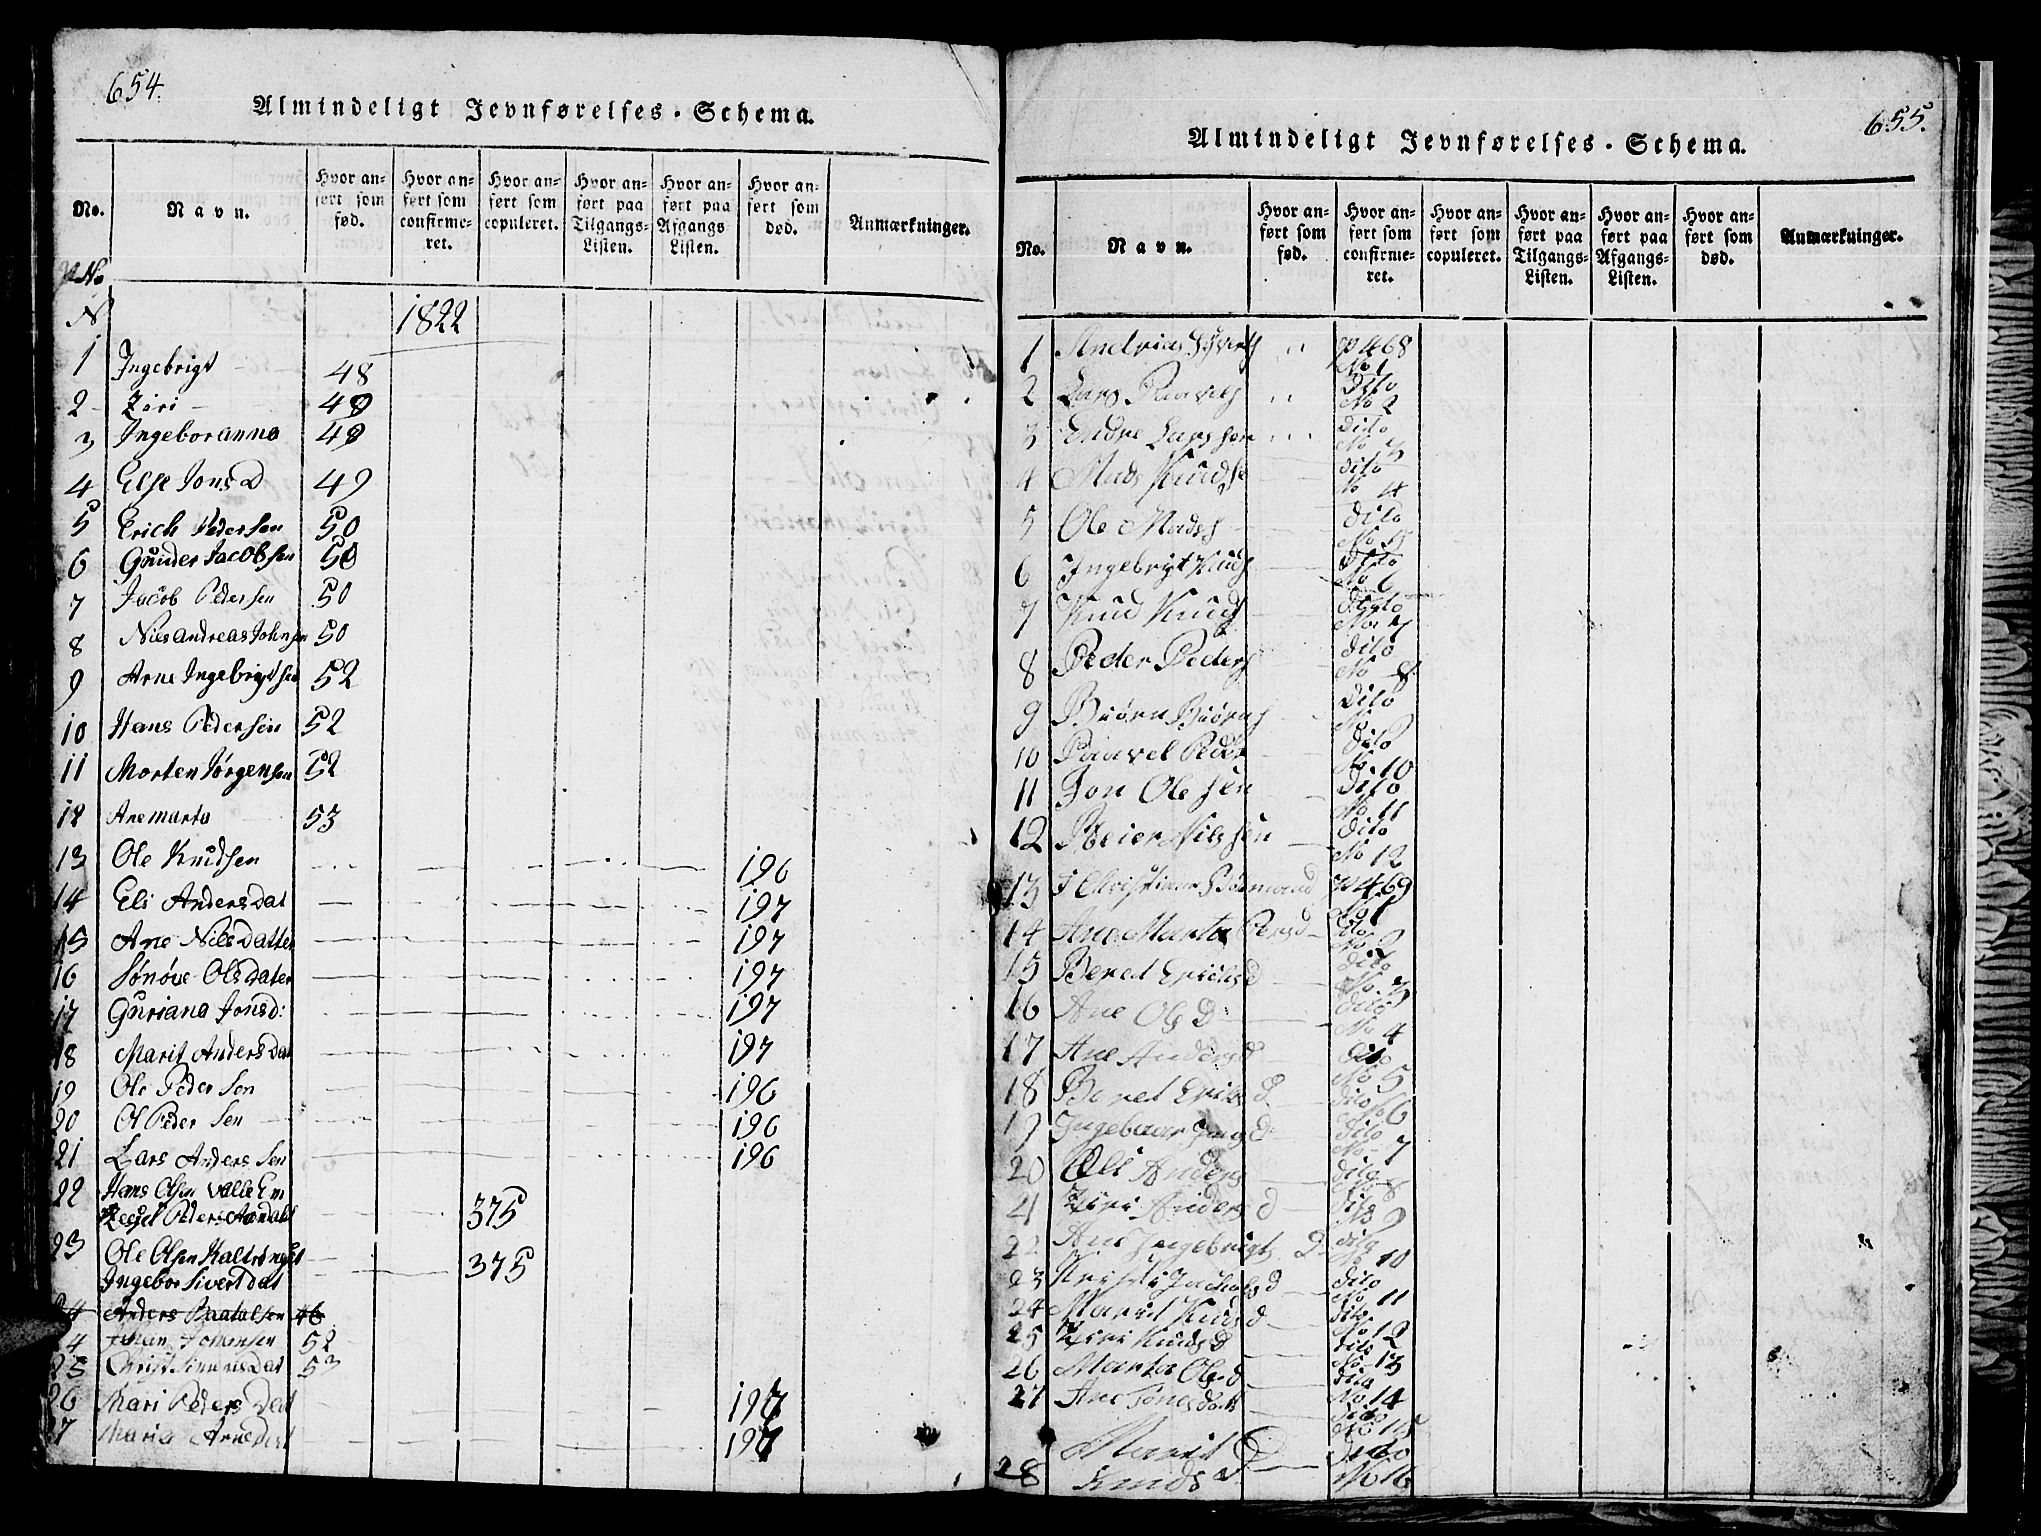 654.
Almindeligt Jevnførelses-Schema.
No.
Navn.
Hvor anført som fød.
Hvor anført som confirmeret.
Hvor anført som copuleret.
Hvor anført paa Tilgangs-Listen.
Hvor anført paa Afgangs-Listen.
Hvor anført som død.
Anmærkninger.
No
N
1822
1 Ingebrigt 48
2 Ziri 49
3 Ingeboranna 49
4 Else Jons D 49
5 Erich Pedersen 50
6 Gunder Jacobsen 50
7 Jacob Pedersen 50
8 Nils andreas Johnsen 50
9 Arne Ingebrigtsen 52
10 Hans Pedersen 52
11 Morten Jørgensen 52
12 Anemarta 53
13 Ole Knudsen 196
14 Eli Anders Dat 197
15 Ane Nils datter 197
16 Sønøve Ols dater 197
17 Guriana Jonsd: 197
18 Marit Anders Dat 197
19 Ole Peder Sen 196
20 Ol Peder Sen 196
21 Lars Anders Sen 196
22 Hans Olsen Valle Em
Peders 375
23 Ole Olsen
Ingebor Sivert Dat 375
24 Anders 46
24 Johan Johansen 52
25 53
26 Mari Peders Dat 197
27 Maria Arne Dat 197
655.
Almindeligt Jevnførelses-Schema.
No.
Navn.
Hvor anført som fød.
Hvor anført som confirmeret.
Hvor anført som copuleret.
Hvor anført paa Tilgangs-Listen.
Hvor anført paa Afgangs-Listen.
Hvor anført som død.
Anmærkninger.
1 Andrias p 468
No 1
2 Lars Paavels Dito
No 2
3 Endre Larssen Dito
No 3
4 Mads Knuds Dito
No 4
5 Ole Mads Dito
No 5
6 Ingebrigt Knuds Dito
No 6
7 Knud Knuds Dito
No 7
8 Peder Peders Dito
No 8
9 Biørn Biørns Dito
No
10 Paavel Peder Dito
No. 10
11 Jon Olesen Dito
No 11
12 Nilssen Dito
No 12
13 p 469
No 1
14 Ane Marta Persd Dito
No 2
15 Beret Erichs d Dito
No. 3
16 Ane Ols D Dito
No 4
17 Ane Anders d Dito
No 5
18 Beret Eriks D. Dito
No 6
19 Dito
No 7
20 Anders Dito
No 8
21 Ziri Anders d Dito
No 9
22 Ane Ingebrigts D Dito
No 10
23 Jachobs d Dito
No 11
24 Marit Knuds d Dito
No 12
25 Ziri Knuds D Dito
No 13
26 Marta Ols d Dito
No 14
27 Ane Tøres Datt Dito
No 15
28 Marit Knuds D. Dito
No 16